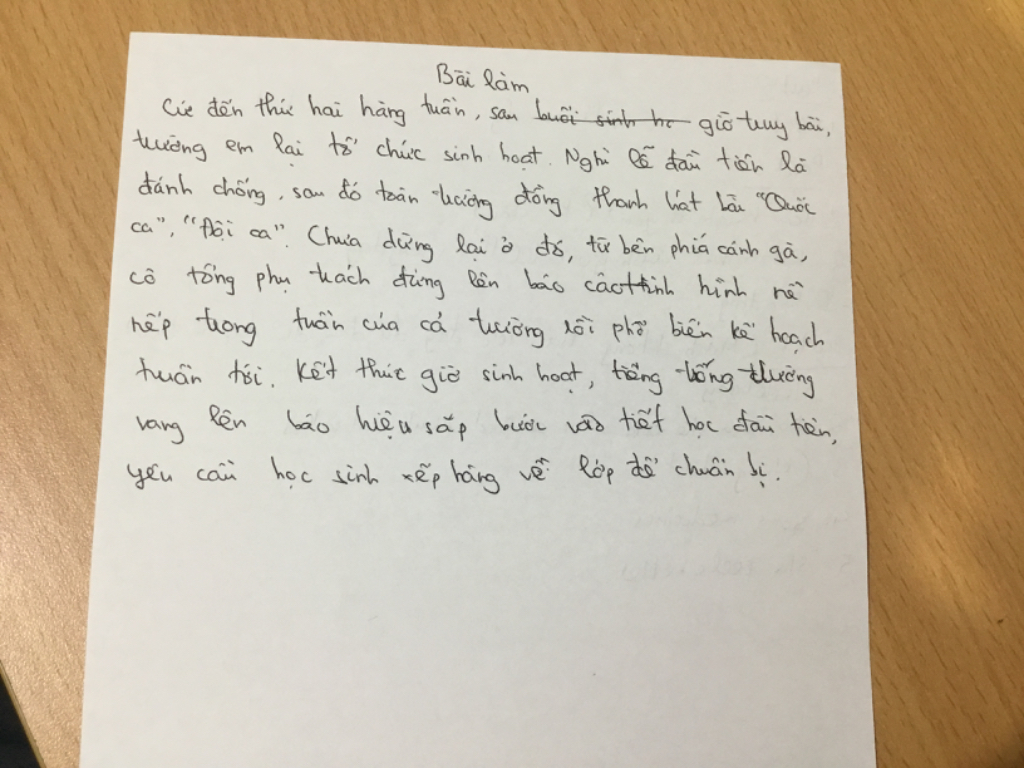 Bài làm
Cứ đến thứ hai hàng tuần, sau buổi sinh ho giờ truy bài,
trường em lại tổ chức sinh hoạt. Nghi lễ đầu tiên là
đánh chống, sau đó toàn trường đồng thanh hát bài "Quốc
ca", "Đội ca". Chưa dừng lại ở đó, từ bên phía cánh gà,
cô tổng phụ trách đứng lên báo cáo tình hình nề
nếp trong tuần của cả trường rồi phổ biến kế hoạch
tuần tới. Kết thúc giờ sinh hoạt, tiếng trống trường
vang lên báo hiệu sắp bước vào tiết học đầu tiên,
yêu cầu học sinh xếp hàng về lớp để chuẩn bị.